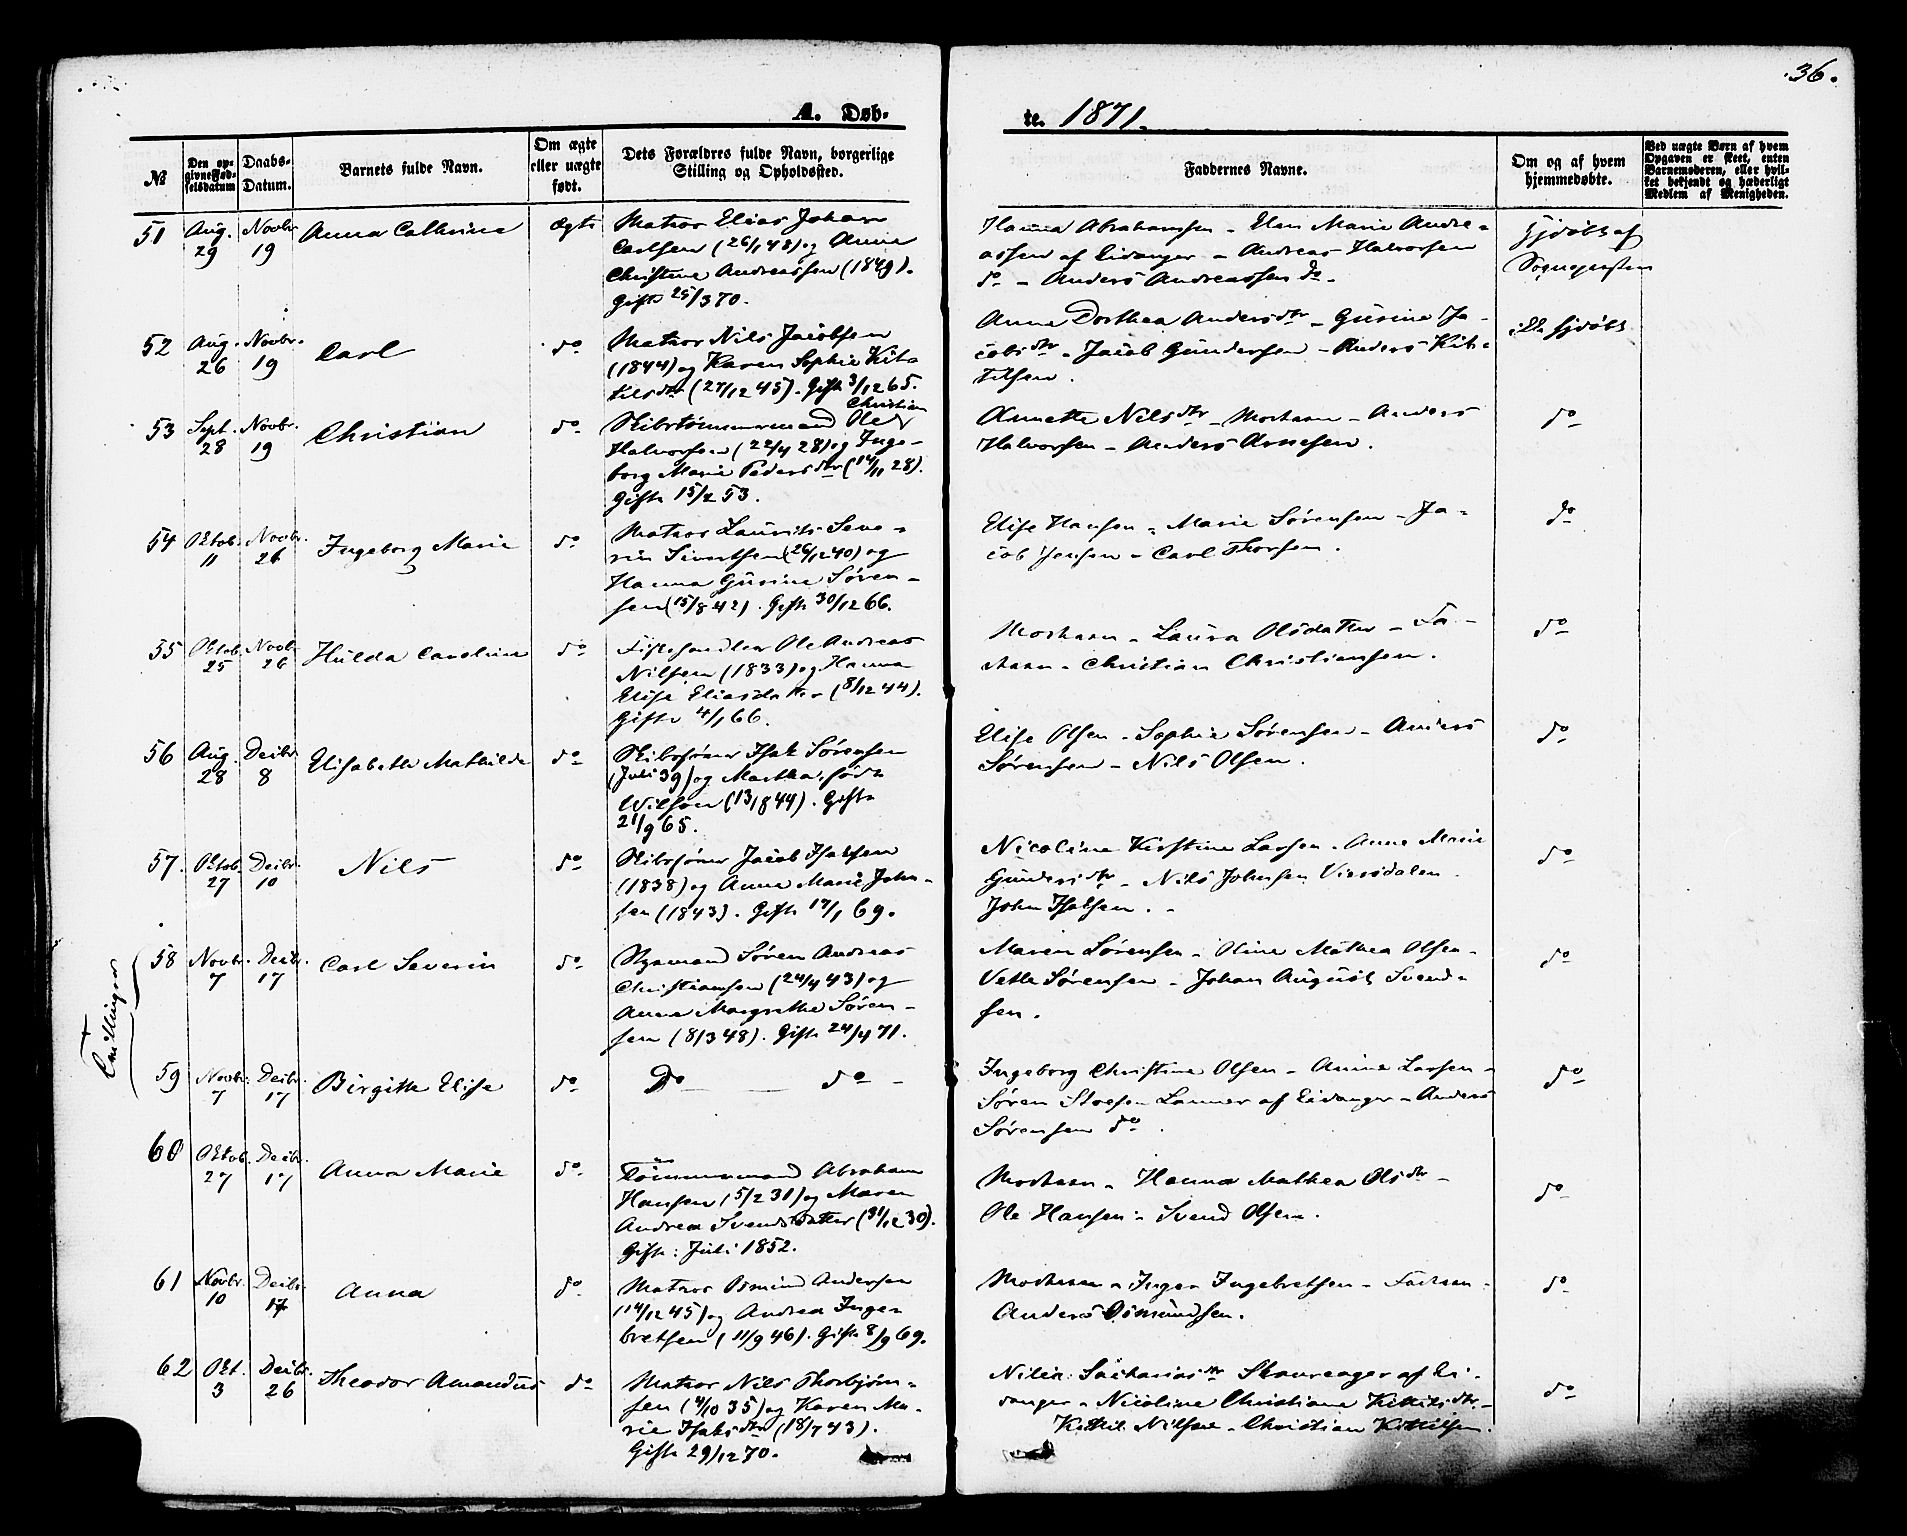 36.
A. Døb-
te. 1871.
№
Den opgivne Fødselsdatum
Daabs-Datum.
Barnets fulde Navn.
Om ægte eller uægte født.
Dets Forældres fulde Navn, borgerlige Stilling og Opholdssted.
Faddernes Navne.
Om og af hvem hjemmedøbte.
Ved uægte Børn af hvem Opgaven er skeet, enten Barnemoderen, eller hvilket bekjendt og hæderligt Medlem af Menigheden.
51 Aug. 29 Novbr. 19 Anna Cathrine Ægte
Matros Elias Johan
Carlsen (26/1 48) og Anne
Christine Andreassen (1849).
Gifte 25/3 70.
Hanna Abrahamsen - Elen Marie Andre-
assen af Eidanger - Andreas Halvorsen
do - Anders Andreassen do -
Hjdøbt af
Sognepresten
52 Aug. 26 Novbr. 19 Carl do
Matros Nils Jacobsen
(1844) og Karen Sophie Kit-
tilsdtr (27/12 45). Gift 3/12 65.
Anne Dorthea Andersdtr - Gurine Ja-
cobsdtr - Jacob Gundersen - Anders Kit-
tilsen.
ikke hjdøbt
53 Sept. 28 Novbr. 19 Christian do
Christian
Skibstømmermand Ole
Halvorsen (22/4 28) og Inge-
borg Marie Pedersdtr (14/11 28).
Gifte 15/2 53.
Annette Nilsdtr - Moderen - Anders
Halvorsen - Anders Arnesen.
do
54 Oktob. 11 Novbr. 26 Ingeborg Marie do
Matros Laurits Seve-
rin Sivertsen (26/12 40) og
Hanna Gurine Søren-
sen (15/8 42). Gifte 30/12 66.
Elise Hansen - Marie Sørensen - Ja-
cob Jensen - Carl Thorsen.
do
55 Oktob. 25 Novbr. 26 Hulda Caroline do
Fiskehandler Ole Andreas
Nilsen (1833) og Hanna
Elise Eliasdatter (8/12 44).
Gifte 4/1 66.
Moderen - Laura Olsdatter - Fa-
deren - Christian Christiansen.
do
56 Aug. 28 Decbr. 8 Elisabeth Mathilde do
Skibsfører Isak Sørensen
(Juli 39) og Martha, født
Wilson (13/8 44). Gifte
21/9 65.
Elise Olsen - Sophie Sørensen - Anders
Sørensen - Nils Olsen.
do
57. Oktob. 27 Decbr. 10 Nils do
Skibsfører Jacob Isaksen
(1838) og Anne Marie John-
sen (1843). Gifte 17/1 69.
Nicoline Kirstine Larsen - Anne Marie
Gundersdtr - Nils Johnsen Versdalen
John Isaksen. -
do
+ Tvillinger
58 Novbr. 7 Decbr. 17 Carl Severin do
Styrmand Søren Andreas
Christiansen (24/4 43) og
Anne Margrethe Søren-
sen (8/3 48). Gifte 24/4 71.
Maren Sørensen - Oline Mathea Olsen -
Vetle Sørensen - Johan August Svend-
sen.
do
59 Novbr. 7 Decbr. 17 Birgitte Elise do
Do do -
Ingeborg Christine Olsen - Anne Larsen -
Søren Larmer af Eidanger - Anders
Sørensen do.
do
60 Oktob. 27 Decbr. 17 Anna Marie do
Tømmermand Abraham
Hansen (5/2 31) og Maren
Andrea Svendsdatter (31/12 30).
Gifte: Juli 1852.
Moderen - Hanna Mathea Olsdtr -
Ole Hansen - Svend Olsen.
do
61 Novbr. 10 Decbr. 17 Anna do
Matros Osmund Andersen
(14/12 45) og Andrea Inge-
bretsen (11/9 46). Gifte 8/9 69.
Moderen - Inger Ingebretsen - Faderen -
Anders Osmundsen.
do
62 Okt. 3 Decbr. 26 Theodor Amandus do
Matros Nils Thorbjørn-
sen (4/10 35) og Karen Ma-
rie Isaksdtr (18/7 43).
Gifte 29/12 70.
Sachariasdtr Skavrager af Ei-
danger - Nicoline Christiane Kittilsdtr -
Kittil Nilsen - Christian Kittilsen.
do